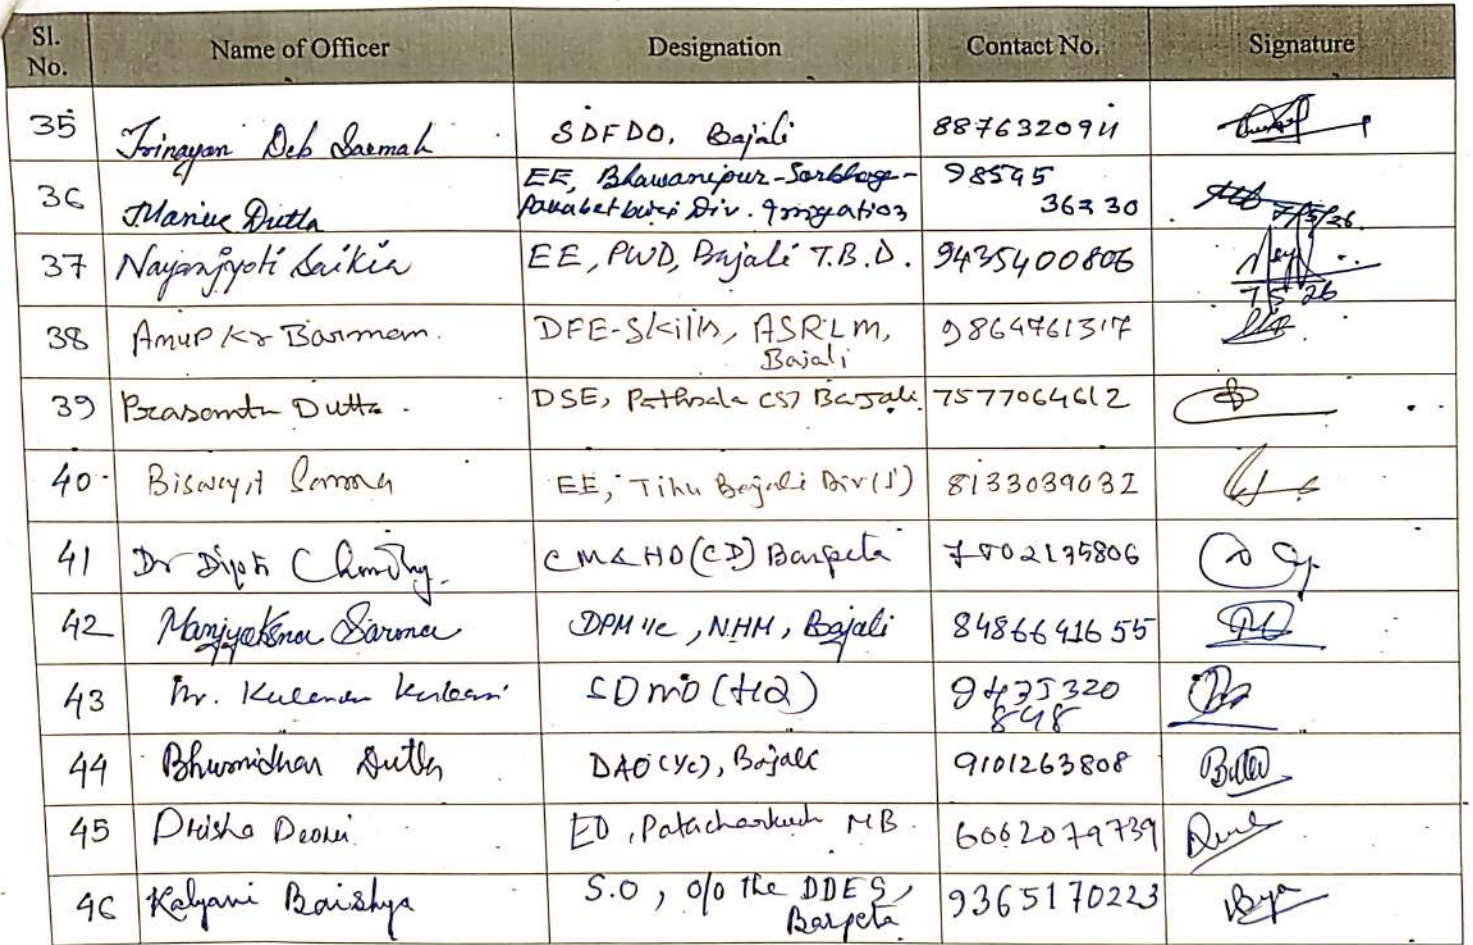 Sl. No. Name of Officer Designation Contact No. Signature
35 Trinayan Deb Sarmah SDFDO, Bajali 8876320911
36 Dutta EE, Bhawanipur-Sorbhog- 98595
Div. Irrigation 36230 7/5/26
37 Nayanjyoti Saikia EE, PWD, Bajali T.B.D. 9435400806
7 5 26
38 Anup Kr Barman. DFE-Skills, ASRLM, 9864761317
Bajali
39 Prasanta Dutta. DSE, Pathsala Bajali 7577064612
40 Biswajit Sarma EE, Tihu Bajali Div(I) 8133039032
41 Dr Dipti C CM&HO(CD) Barpeta 7002135806
42 Manjyotsna Sarma DPM i/c, NHM, Bajali 8486641655
43 SDMO (HQ) 9435320
848
44 Bhumidhar Dutta DAO (i/c), Bajali 9101263808
45 Drisha Deori EO, Patacharkuch MB. 6002079739
46 Kalyani Baishya S.O, o/o the DDES, 9365170223
Barpeta